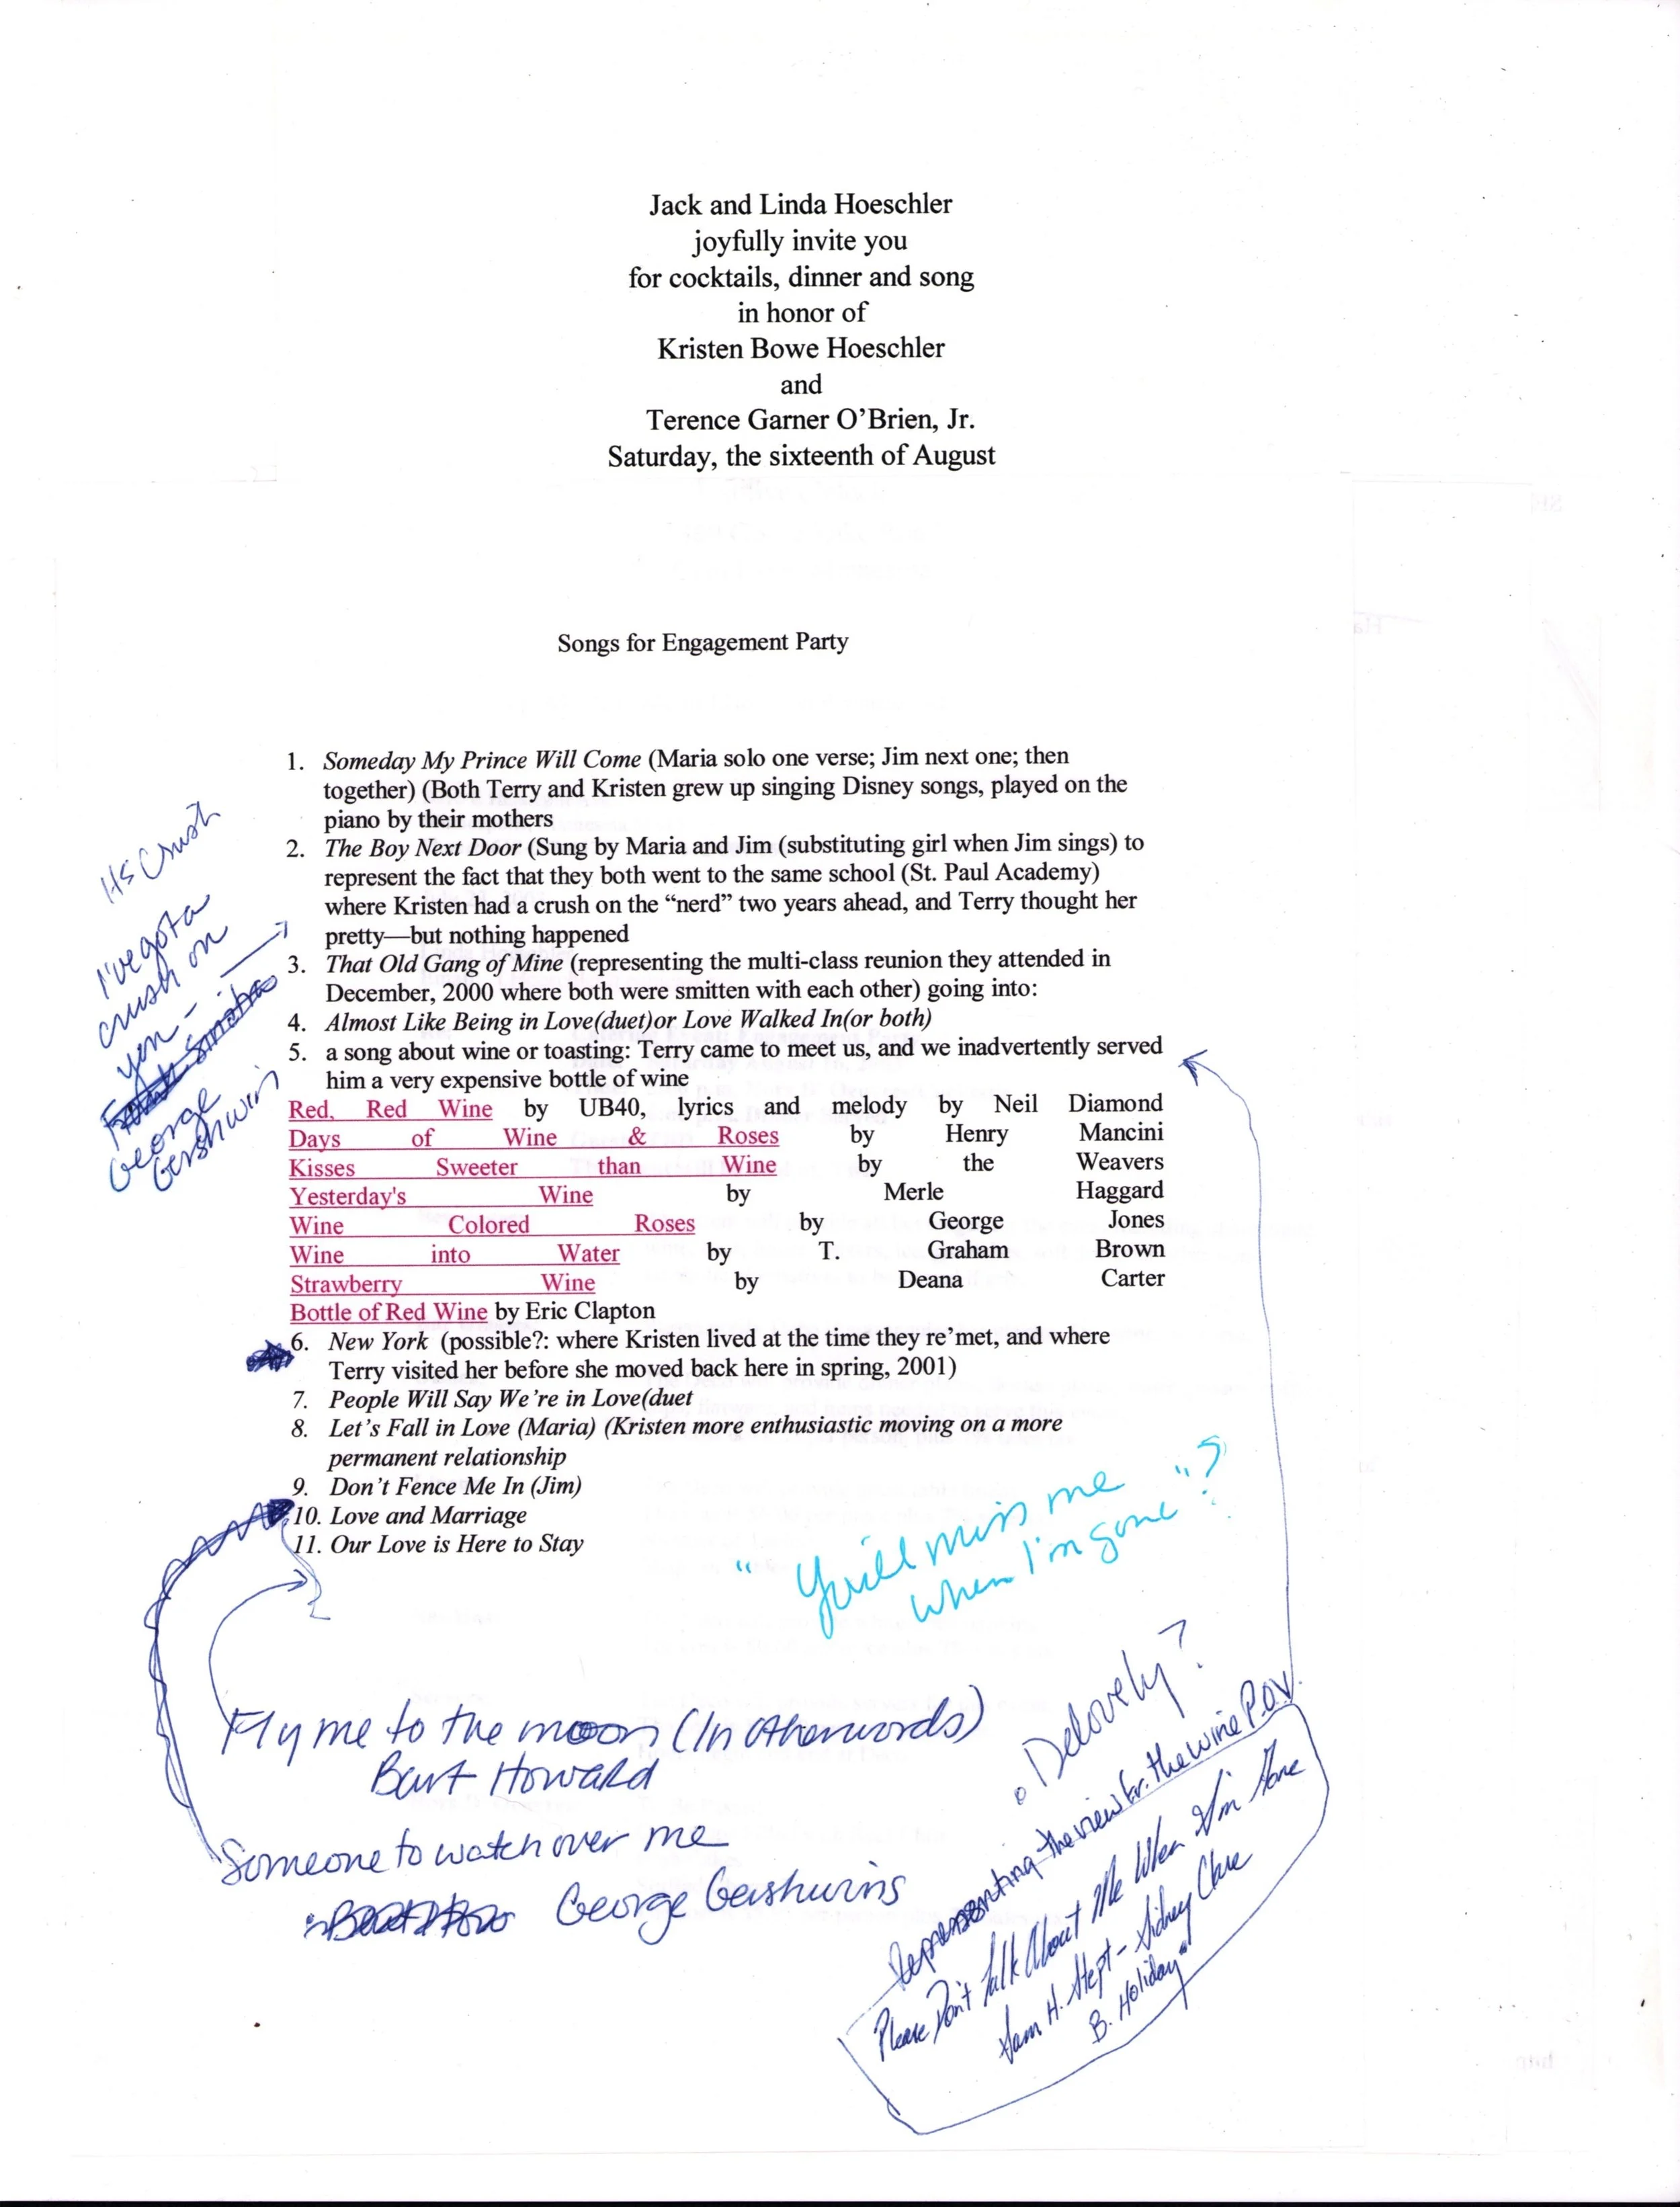 Jack and Linda Hoeschler
joyfully invite you
for cocktails, dinner and song
in honor of
Kristen Bowe Hoeschler
and
Terence Garner O’Brien, Jr.
Saturday, the sixteenth of August
Songs for Engagement Party
1. Someday My Prince Will Come (Maria solo one verse; Jim next one; then
together) (Both Terry and Kristen grew up singing Disney songs, played on the
piano by their mothers
2. The Boy Next Door (Sung by Maria and Jim (substituting girl when Jim sings) to
represent the fact that they both went to the same school (St. Paul Academy)
where Kristen had a crush on the “nerd” two years ahead, and Terry thought her
pretty—but nothing happened
3. That Old Gang of Mine (representing the multi-class reunion they attended in
December, 2000 where both were smitten with each other) going into:
4. Almost Like Being in Love(duet)or Love Walked In(or both)
5. a song about wine or toasting: Terry came to meet us, and we inadvertently served
him a very expensive bottle of wine
Red, Red Wine by UB40, lyrics and melody by Neil Diamond
Days of Wine & Roses by Henry Mancini
Kisses Sweeter than Wine by the Weavers
Yesterday's Wine by Merle Haggard
Wine Colored Roses by George Jones
Wine into Water by T. Graham Brown
Strawberry Wine by Deana Carter
Bottle of Red Wine by Eric Clapton
6. New York (possible?: where Kristen lived at the time they re’met, and where
Terry visited her before she moved back here in spring, 2001)
7. People Will Say We’re in Love(duet
8. Let’s Fall in Love (Maria) (Kristen more enthusiastic moving on a more
permanent relationship
9. Don’t Fence Me In (Jim)
10. Love and Marriage
11. Our Love is Here to Stay
HS Crush
I've got a
crush on
you –
Sinatra
George
Gershwin
"You'll miss me
when I'm gone"?
Fly me to the moon (In Otherwords)
Bart Howard
Someone to watch over me
George Gershwins
Delovely?
representing the view for. the wine P.O.V.
Please Don't Talk About Me When I'm Gone
Sam H. Stept – Sidney Clare
B. Holiday